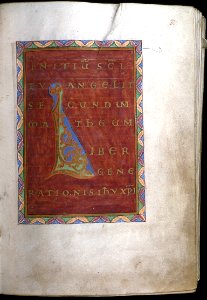 INITIŪ SCI
EVANGELII
SECUNDUM
MATHEUM
LIBER
GENE
RATIONIS IHV XPI